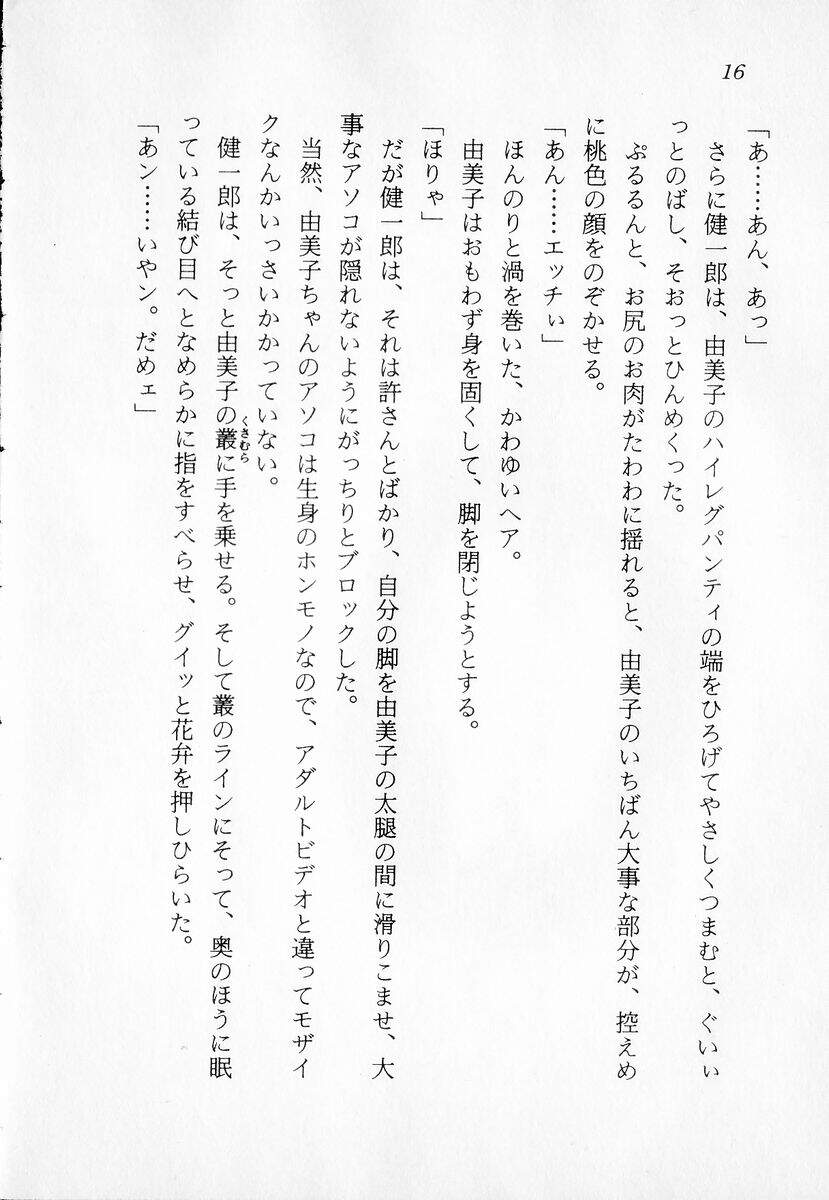 16
「あ……あん、あっ」
さらに健一郎は、由美子のハイレグパンティの端をひろげてやさしくつまむと、ぐいぃ
っとのばし、そおっとひんめくった。
ぷるるんと、お尻のお肉がたわわに揺れると、由美子のいちばん大事な部分が、控えめ
に桃色の顔をのぞかせる。
「あん……エッチぃ」
ほんのりと渦を巻いた、かわゆいヘア。
由美子はおもわず身を固くして、脚を閉じようとする。
「ほりゃ」
だが健一郎は、それは許さんとばかり、自分の脚を由美子の太腿の間に滑りこませ、大
事なアソコが隠れないようにがっちりとブロックした。
当然、由美子ちゃんのアソコは生身のホンモノなので、アダルトビデオと違ってモザイ
クなんかいっさいかかっていない。
健一郎は、そっと由美子の叢くさむらに手を乗せる。そして叢のラインにそって、奥のほうに眠
っている結び目へとなめらかに指をすべらせ、グイッと花弁を押しひらいた。
「あン……いやン。だめェ」